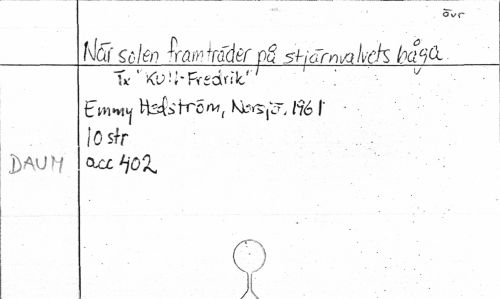 övr
När solen framträder på stjärnvalvets båga
Tx "Kull-Fredrik"
Emmy Hedström, Norsjö, 1961
10 str
DAUM acc 402